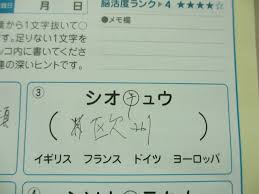 月 日
脳活度ランク▶4 ★★★★
●メモ欄
から1文字抜いて○
す。足りない1文字を
ッコ内に書いてくださ
の深いヒントです。
③
シオ㋠ュウ
欧
イギリス フランス ドイツ ヨーロッパ